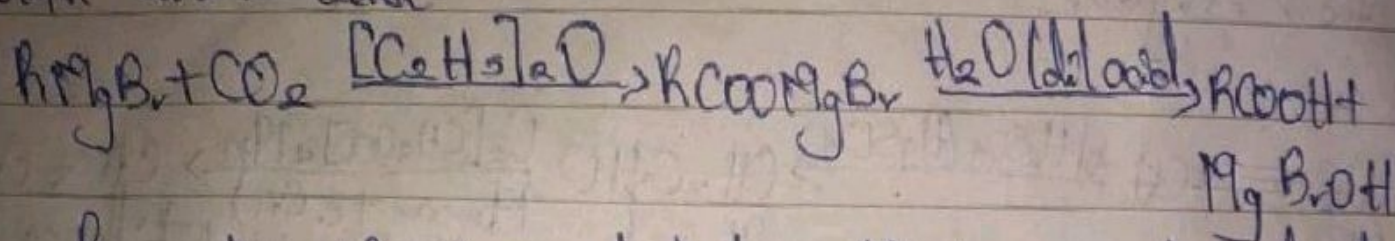 RMgBr + CO₂ [C₂H₅]₂O → RCOOMgBr H₂O (dil acid) → RCOOH +
MgBrOH